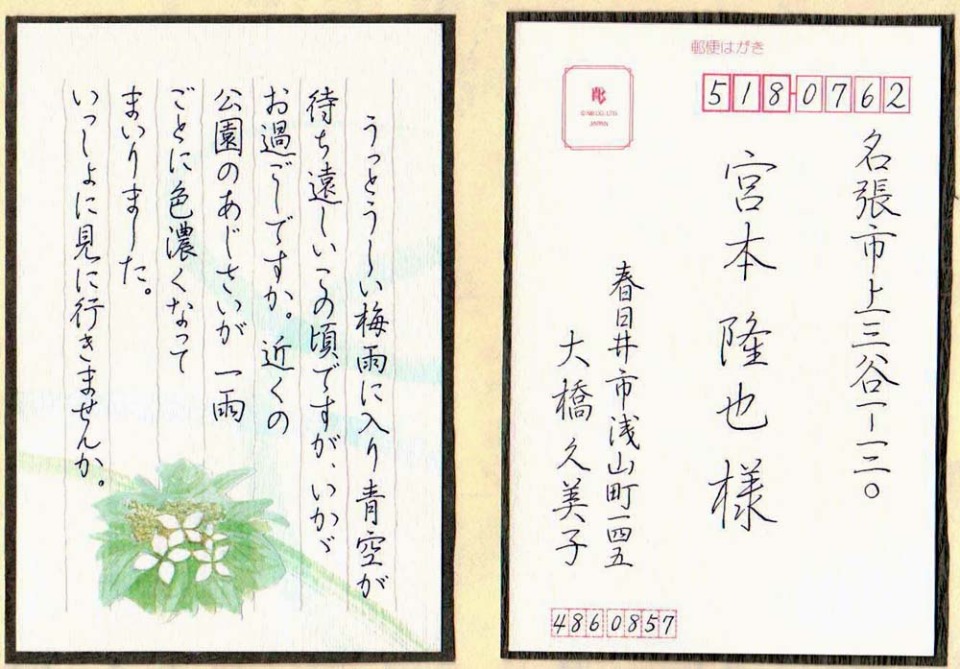 うっとうしい梅雨に入り青空が
待ち遠しいこの頃ですが、いかが
お過ごしですか。近くの
公園のあじさいが一雨
ごとに色濃くなって
まいりました。
いっしょに見に行きませんか。
郵便はがき
518-0762
名張市上三谷一-一三〇
宮本隆也様
春日井市浅山町一四五
大橋久美子
4860857